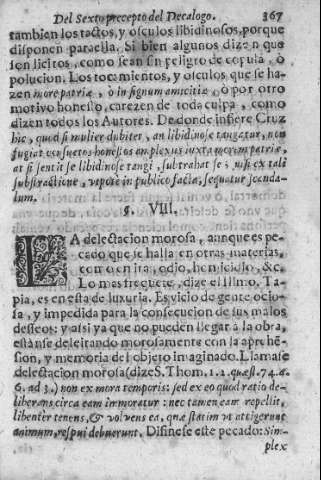 Del Sexto precepto del Decalogo. 367
tambien los tactos, y osculos libidinosos, porque
disponen para ella. Si bien algunos dizen que
son licitos, como sean sin peligro de copula, ò
polucion. Los tocamientos, y osculos, que se ha-
zen more patriæ, ò in signum amicitiæ, ò por otro
motivo honesto, carezen de toda culpa, como
dizen todos los Autores. De donde infiere Cruz
hic, quod si mulier dubitet, an libidinose tangatur, non
fugiat consuetos honestos amplexus iuxta morem patriæ,
at si sentit se libidinose tangi, subtrahat se; nisi ex tali
substractione, utpote in publico facta, sequatur scanda-
lum.
§. VIII.
LA delectacion morosa, aunque es pe-
cado que se halla en otras materias,
como en ira, odio, homicidio, &c.
Lo mas frequente, dize el Illmo. Ta-
pia, es en esta de luxuria. Es vicio de gente ocio-
sa, y impedida para la consecucion de sus malos
desseos: y assi ya que no pueden llegar à la obra,
estànse deleitando morosamente con la aprehe-
sion, y memoria del objeto imaginado. Llamase
delectacion morosa (dize S. Thom. 1. 2. quæst. 74. a.
6. ad 3.) non ex mora temporis: sed ex eo quod ratio de-
liberans circa eam immoratur: nec tamen eam repellit,
libenter tenens, & volvens ea, quæ statim ut attigerunt
animum, respui debuerunt. Difinese este pecado: Sim-
plex